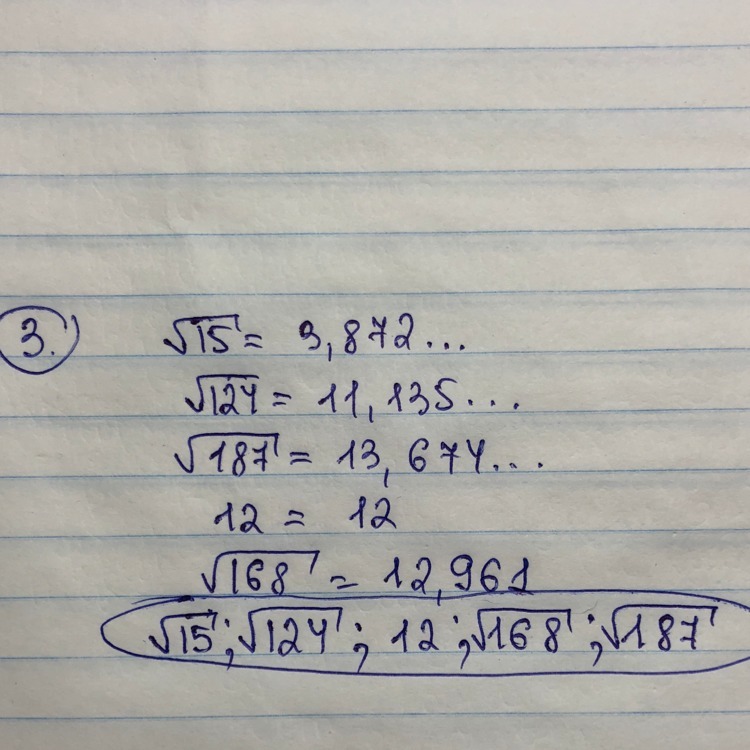 3. √15 = 3,872...
√124 = 11,135...
√187 = 13,674...
12 = 12
√168 = 12,961
√15; √124; 12; √168; √187